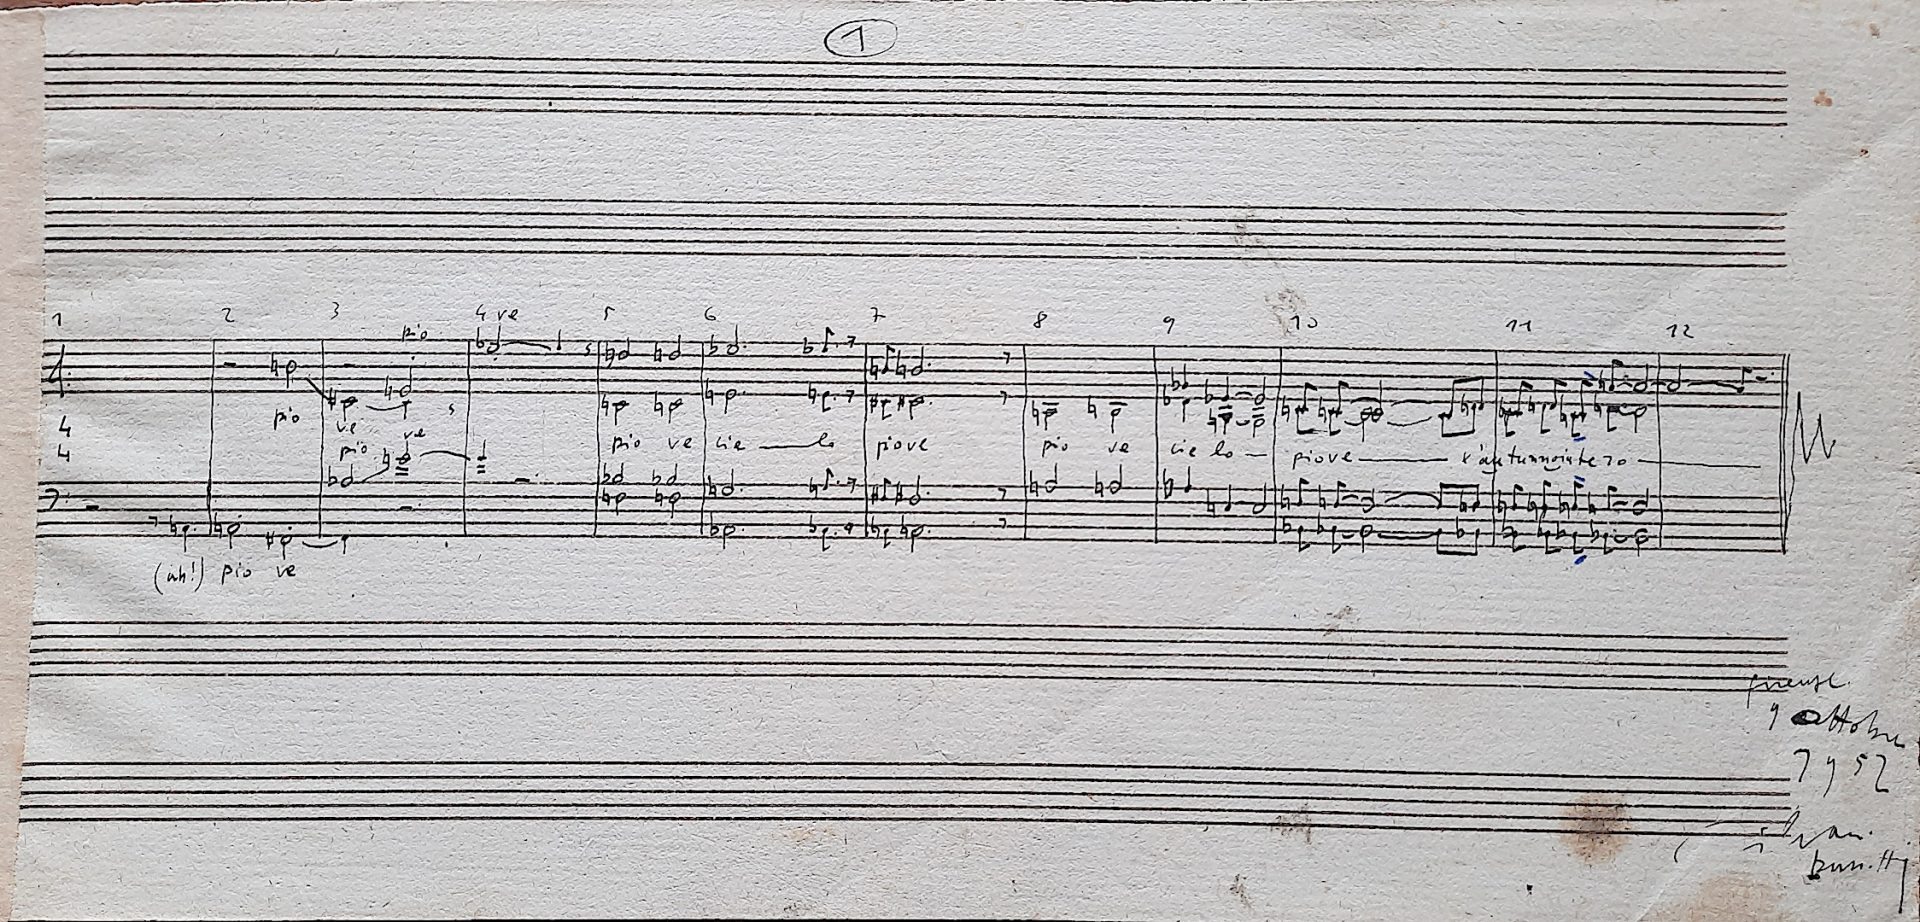 1
1 2 3 4 5 6 7 8 9 10 11 12
pio ve
pio ve pio ve cie lo piove pio ve cie lo piove
pio ve
4
4
(ah!) pio ve
firenze
9 ottobre
1952
Sylvano
Bussotti